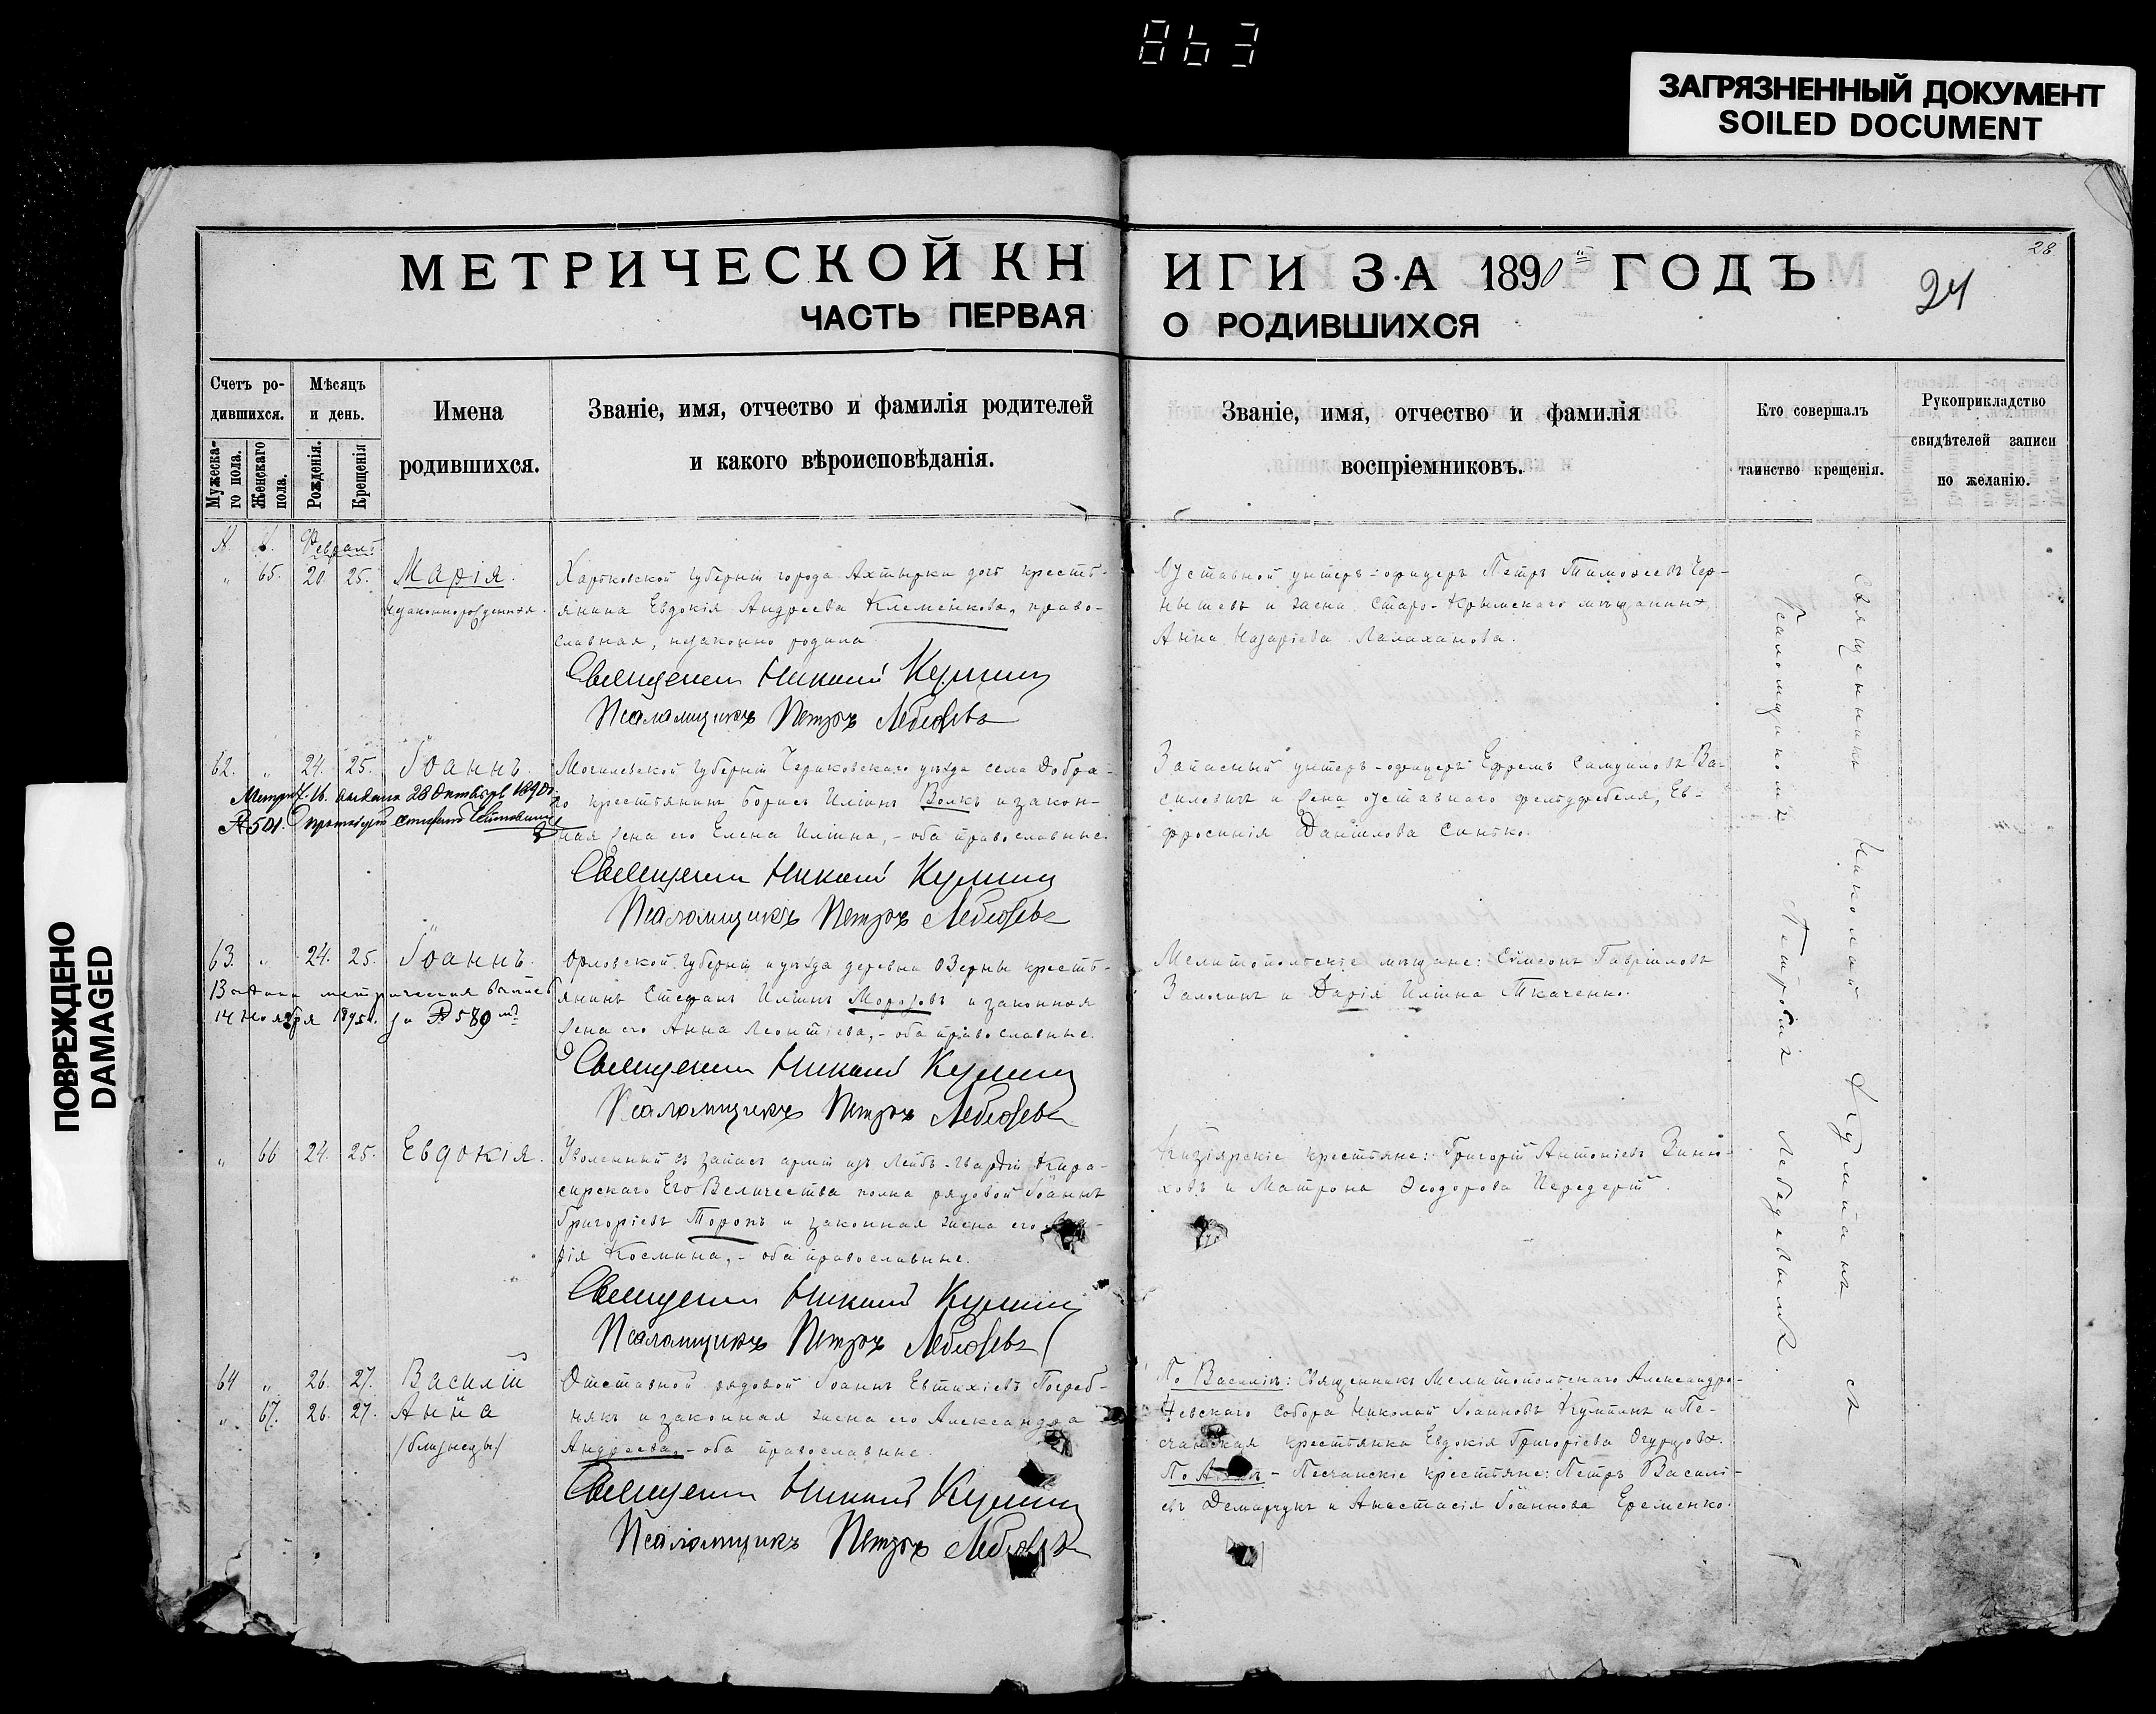 863
ЗАГРЯЗНЕННЫЙ ДОКУМЕНТ
SOILED DOCUMENT
ПОВРЕЖДЕНО
DAMAGED
28
24
МЕТРИЧЕСКОЙ КНИГИ ЗА 1890й ГОДЪ
ЧАСТЬ ПЕРВАЯ О РОДИВШИХСЯ
Счетъ ро-
дившихся.
Мужеска-
го пола.
Женскаго
пола.
Мѣсяцъ
и день.
Рожденія.
Крещенія
Имена
родившихся.
Званіе, имя, отчество и фамилія родителей
и какого вѣроисповѣданія.
Званіе, имя, отчество и фамилія
воспріемниковъ.
Кто совершалъ
таинство крещенія.
Рукоприкладство
свидѣтелей записи
по желанію.
№. №. Февраль
„ 65. 20. 25. Марія.
Незаконнорожденная.
Харьковской Губерніи города Ахтырки дочь кресть-
янина Евдокія Андреева Клеменкова, право-
славная, незаконно родила
Священникъ Николай Кулишъ
Псаломщикъ Петръ Лебедевъ
Уставной унтеръ-офицеръ Петръ Тимоѳеевъ Чер-
нышевъ и жена Старо-Крымскаго мѣщанина
Анна Назаріева Палаханова.
62. „ 24. 25. Іоаннъ.
28 Октября 1890
№ 501.
Могилевской Губерніи Чериковскаго уѣзда села Добра-
го крестьянинъ Борисъ Иліинъ Волкъ и закон-
ная жена его Елена Иліина, - оба православные.
Священникъ Николай Кулишъ
Псаломщикъ Петръ Лебедевъ
Запасный унтеръ-офицеръ Ефремъ Самуиловъ Ва-
силовичъ и жена уставнаго фельдфебеля, Ев-
фросинія Даніилова Синько.
63. „ 24. 25. Іоаннъ.
метрическая выпись
14 Ноября 1895г. за № 589мъ
Орловской Губерніи и уѣзда деревни Озерны кресть-
янинъ Стефанъ Иліинъ Морозовъ и законная
жена его Анна Леонтіева, - оба православные.
Священникъ Николай Кулишъ
Псаломщикъ Петръ Лебедевъ
Мелитопольскіе мѣщане: Симеонъ Гавріиловъ
Залогинъ и Дарія Иліина Ткаченко.
„ 66 24. 25. Евдокія.
Уволенный въ запасъ арміи изъ Лейбъ-Гвардіи Кира-
сирскаго Его Величества полка рядовой Іоаннъ
Григоріевъ Торопъ и законная жена его
дія Космина, - оба православные.
Священникъ Николай Кулишъ
Псаломщикъ Петръ Лебедевъ
Кизіярскіе крестьяне: Григорій Антоніевъ Зинь-
ховъ и Матрона Ѳеодорова Передерій.
64 „ 26. 27. Василій
„ 67. 26. 27. Анна
/близнецы/
Отставной рядовой Іоаннъ Евтихіевъ Погреб-
някъ и законная жена его Александра
Андреева, - оба православные.
Священникъ Николай Кулишъ
Псаломщикъ Петръ Лебедевъ
По Василіѣ: Священникъ Мелитопольскаго Александро-
Невскаго Собора Николай Іоанновъ Кулишъ и Пе-
счанская крестьянка Евдокія Григоріева Огурцова.
По Аннѣ - Песчанскіе крестьяне: Петръ Василі-
евъ Демарчукъ и Анастасія Іоаннова Еременко.
Священникъ Николай Кулишъ съ
Псаломщикомъ Петромъ Лебедевымъ.